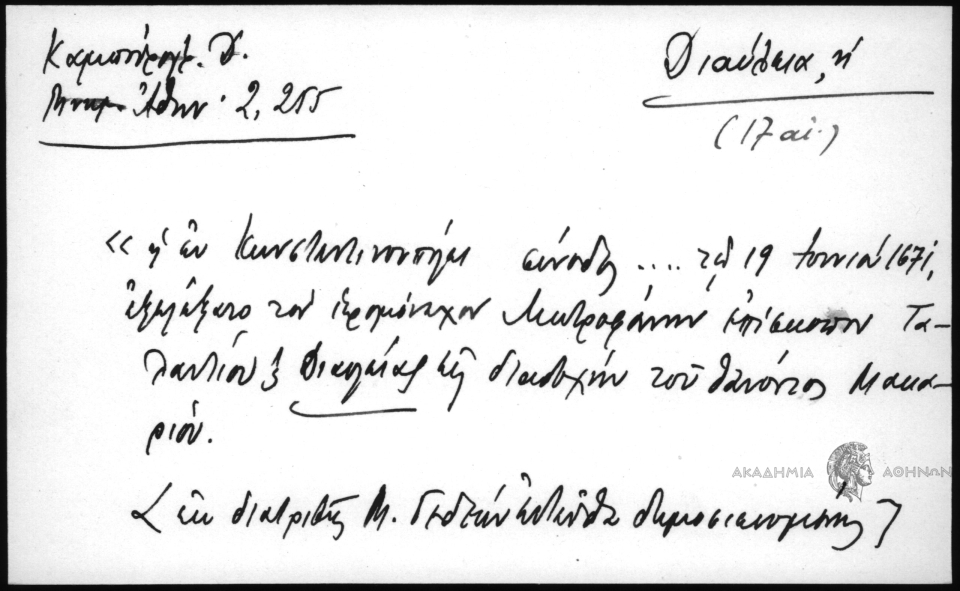 Καμπούρογλ. Δ.
Μνημ. Ἀθην. 2, 255
Διαύλεια, ἡ
(17 αἰ.)
« ἡ ἐν Κωνσταντινουπόλει σύνοδος .... τῇ 19 Ἰουνίου 1671,
ἐξελέξατο τὸν ἱερομόναχον Μητροφάνην ἐπίσκοπον Τα-
λαντίου καὶ Διαυλείας εἰς διαδοχὴν τοῦ θανόντος Μακα-
ρίου.
(ἐκ διατριβῆς Μ. Γεδεὼν ἐνταῦθα δημοσιευομένης)
ΑΚΑΔΗΜΙΑ ΑΘΗΝΩΝ